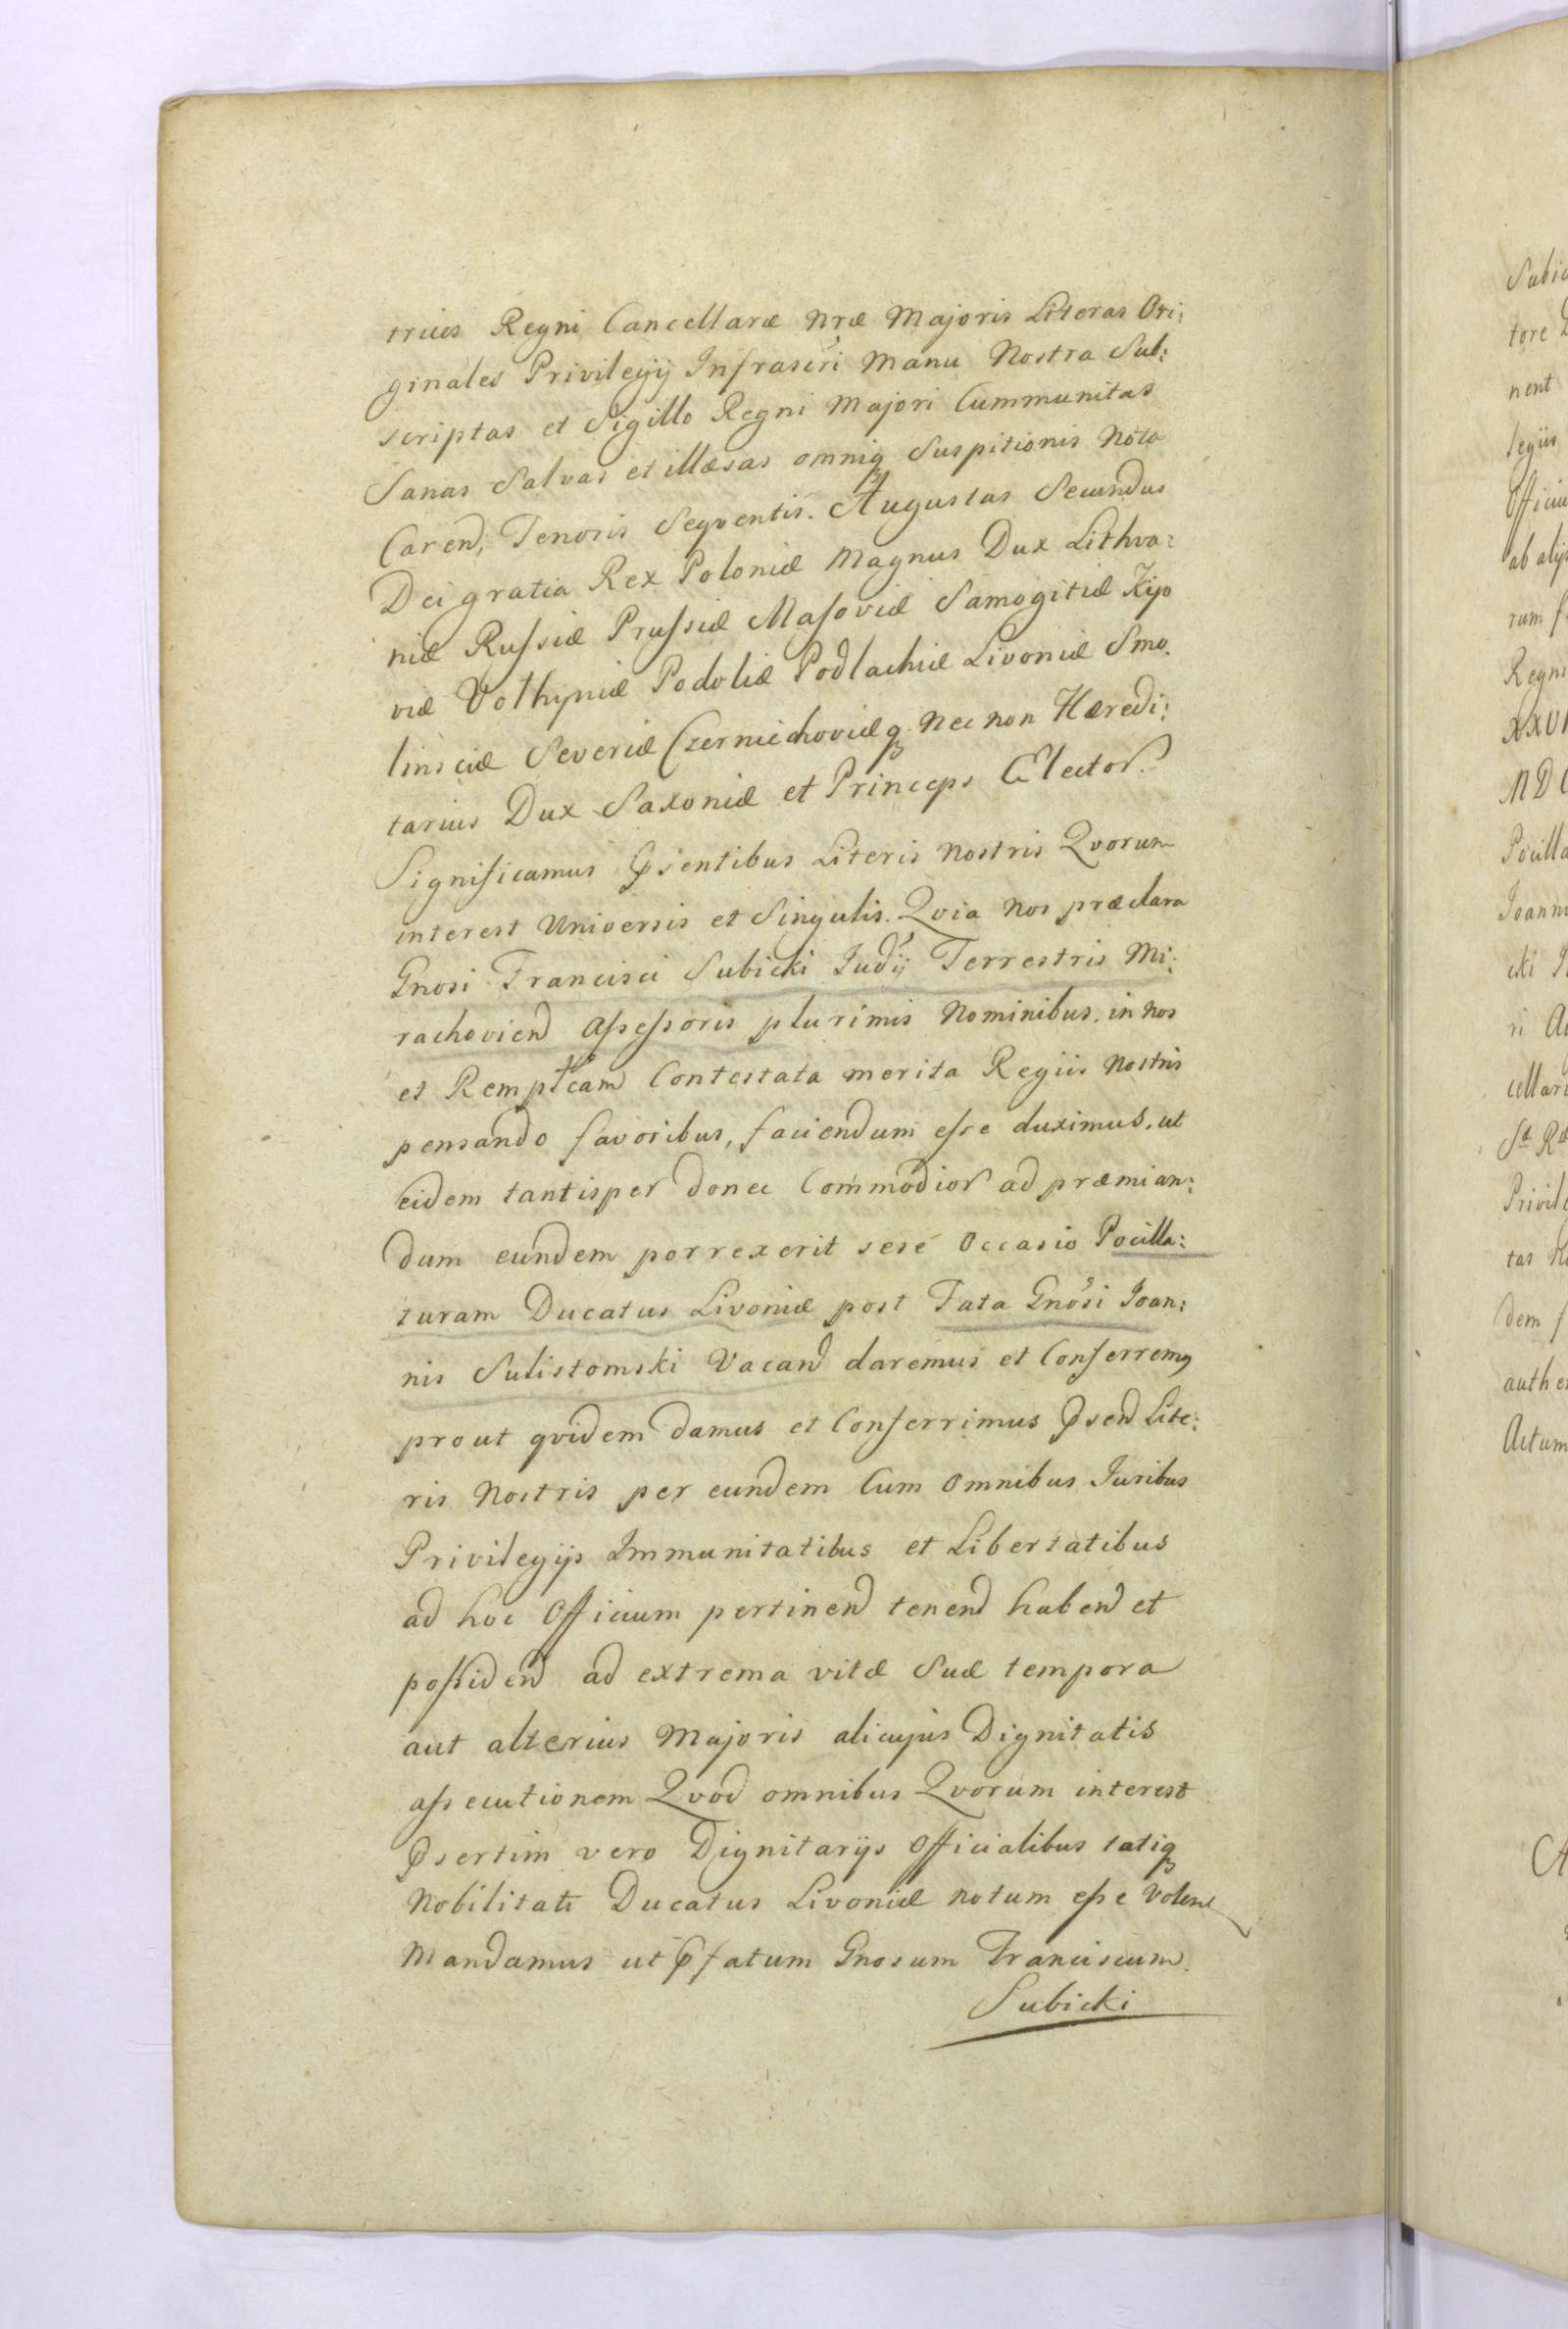 trices Regni Cancellaræ Nræ Majoris Literas Ori:
ginales Privilegij Infrascri Manu Nostra Sub:
scriptas et Sigillo Regni Majori Cummunitas
Sanas Salvas et illæsas omniq Suspitionis Nota
Carend, Tenoris Seqventis. Augustas Secundus
Dei gratia Rex Poloniæ Magnus Dux Lithva:
niæ Russiæ Prussiæ Masoviæ Samogitiæ Kijo
viæ Volhyniæ Podoliæ Podlachiæ Livoniæ Smo.
linsciæ Severiæ Czerniechoviæq nec non Hæredi:
tarius Dux Saxoniæ et Princeps Elector.
Significamus Psentibus Literis Nostris Qvorum
interest Universis et Singulis. Qvia Nos præclara
Gnosi Francisci Subicki Judij Terrestris Mi:
rachoviend Assessoris plurimis Nominibus. in Nos
et Rempcam Contestata merita Regiis Nostris
pensando favoribus, faciendum esse duximus. ut
eidem tantisper donec Commodior ad præmian:
dum eundem porrexerit sese Occasio Pocilla:
turam Ducatus Livoniæ post Fata Gnosi Joan:
nis Sulistomski Vacand daremus et Conferremq
prout qvidem damus et Conferrimus Psend Lite:
ris Nostris per eundem Cum Omnibus Juribus
Privilegijs Immunitatibus et Libertatibus
ad hoc Officium pertinend tenend habend et
possidend ad extrema vitæ Suæ tempora
aut alterius Majoris alicujus Dignitatis
assecutionem Qvod omnibus Qvorum interest
Psertim vero Dignitarijs Officialibus totiq
Nobilitati Ducatus Livoniæ notum esse Volent
Mandamus ut Pfatum Gnosum Franciscum
Subicki
nent
legiis
Regni